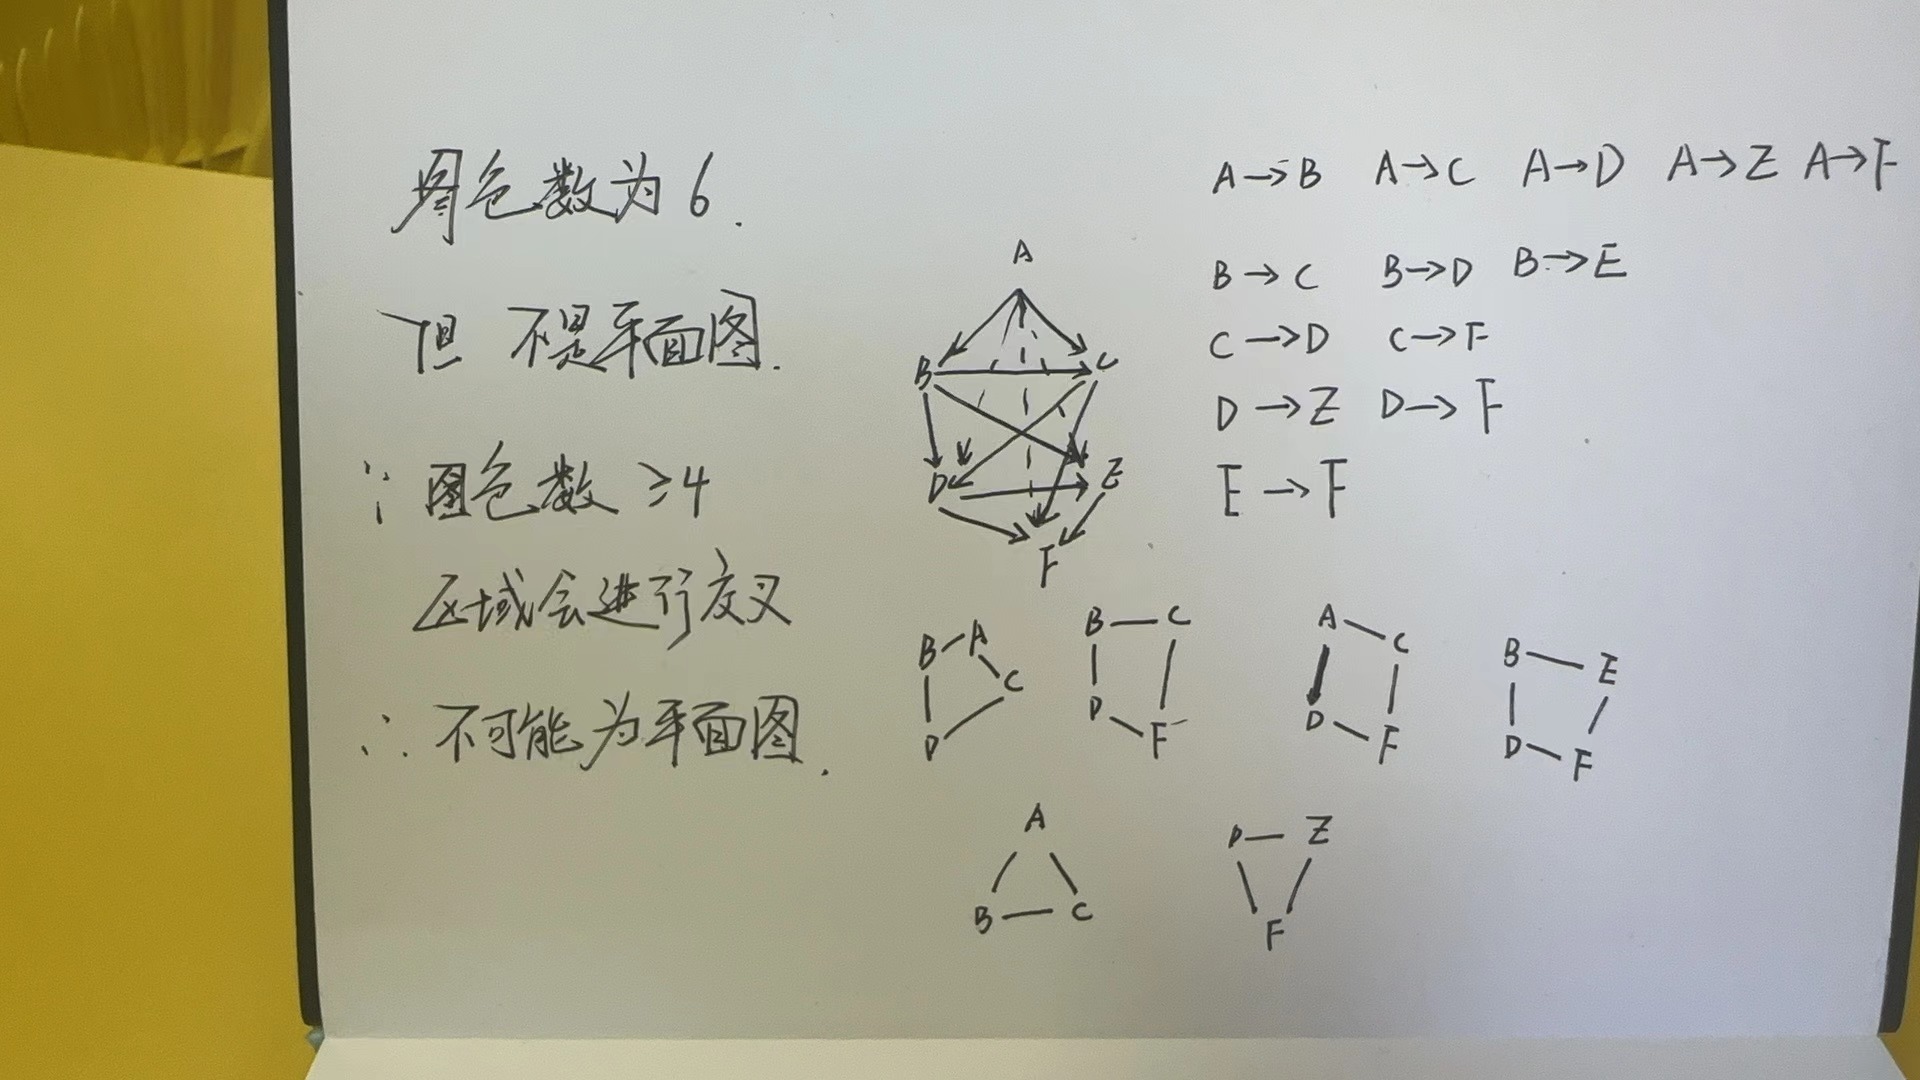 图色数为6.
但 不是平面图.
∵ 图色数 ≥4
区域会进行交叉
∴ 不可能为平面图.
A→B A→C A→D A→Z A→F
B→C B→D B→E
C→D C→F
D→Z D→F
E→F
A
B C
D E
F
B A
C
D
B C
D F
A C
D F
B E
D F
A
B C
D Z
F